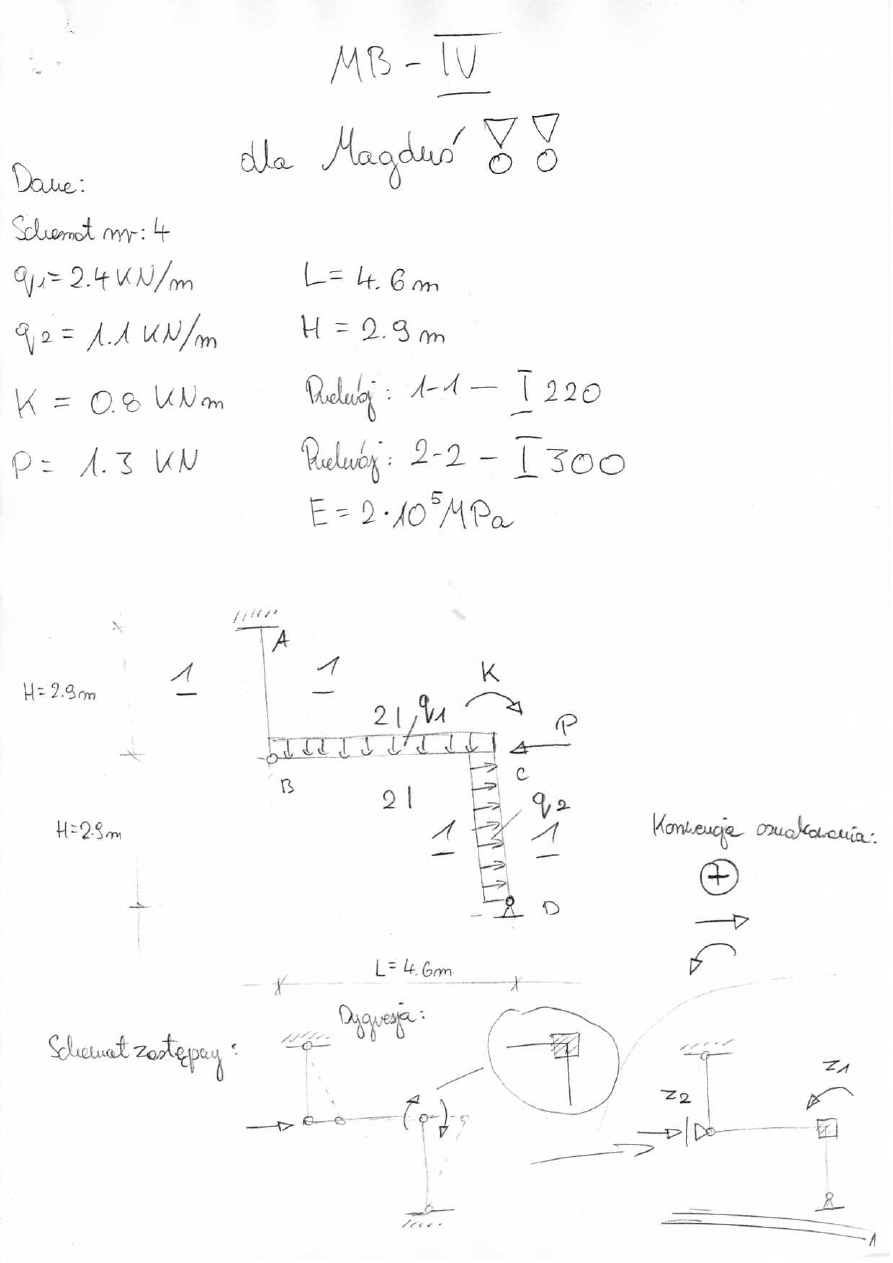 MB - IV
dla Magduś !!
Dane:
Schemat nr: 4
q1 = 2.4 KN/m
L = 4.6 m
q2 = 1.1 KN/m
H = 2.9 m
K = 0.8 KNm
Przekrój: 1-1 — I 220
P = 1.3 KN
Przekrój: 2-2 - I 300
E = 2·10⁵ MPa
A
1 1
K
H = 2.9 m
2 q1
P
B
C
2
q2
H = 2.9 m
1 1
Konwencja oznakowania:
D
+
L = 4.6 m
Dygresja:
Schemat zastępczy:
Z1
Z2
1